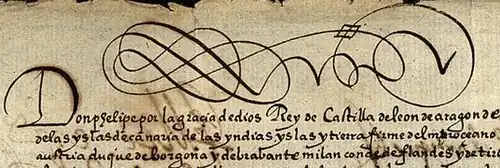 Don phelipe por la gracia de dios Rey de Castilla de leon de aragon de
de las yslas de canaria de las yndias yslas y tierra firme del mar oceano
austria duque de borgoña y de brabante milan conde de flandes y de tir